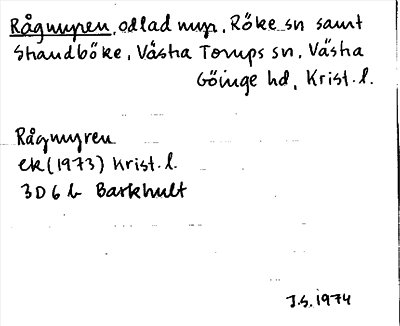 Rågmyren, odlad myr, Röke sn samt
Strandböke, Västra Torups sn, Västra
Göinge hd, Krist. l.
Rågmyren
ek (1973) Krist. l.
3D 6 b Barkhult
J.S. 1974